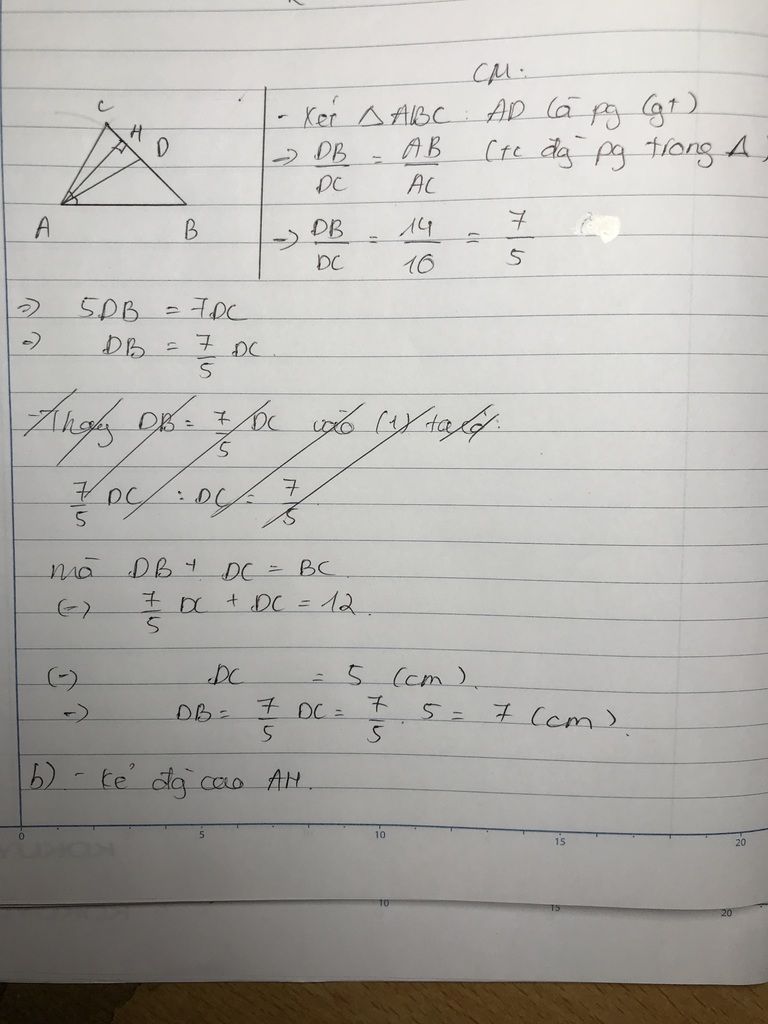 CM:
C
H
D
A
B
- Xét △ABC: AD là pg (gt)
=> DB/DC = AB/AC (tc đg pg trong △)
=> DB/DC = 14/10 = 7/5
=> 5DB = 7DC
=> DB = 7/5 DC.
- Thay DB = 7/5 DC vào (1) ta có:
7/5 DC : DC = 7/5
mà DB + DC = BC
(=) 7/5 DC + DC = 12.
(=) DC = 5 (cm).
=> DB = 7/5 DC = 7/5 . 5 = 7 (cm).
b) - Kẻ đg cao AH.
0 5 10 15 20
10 15 20